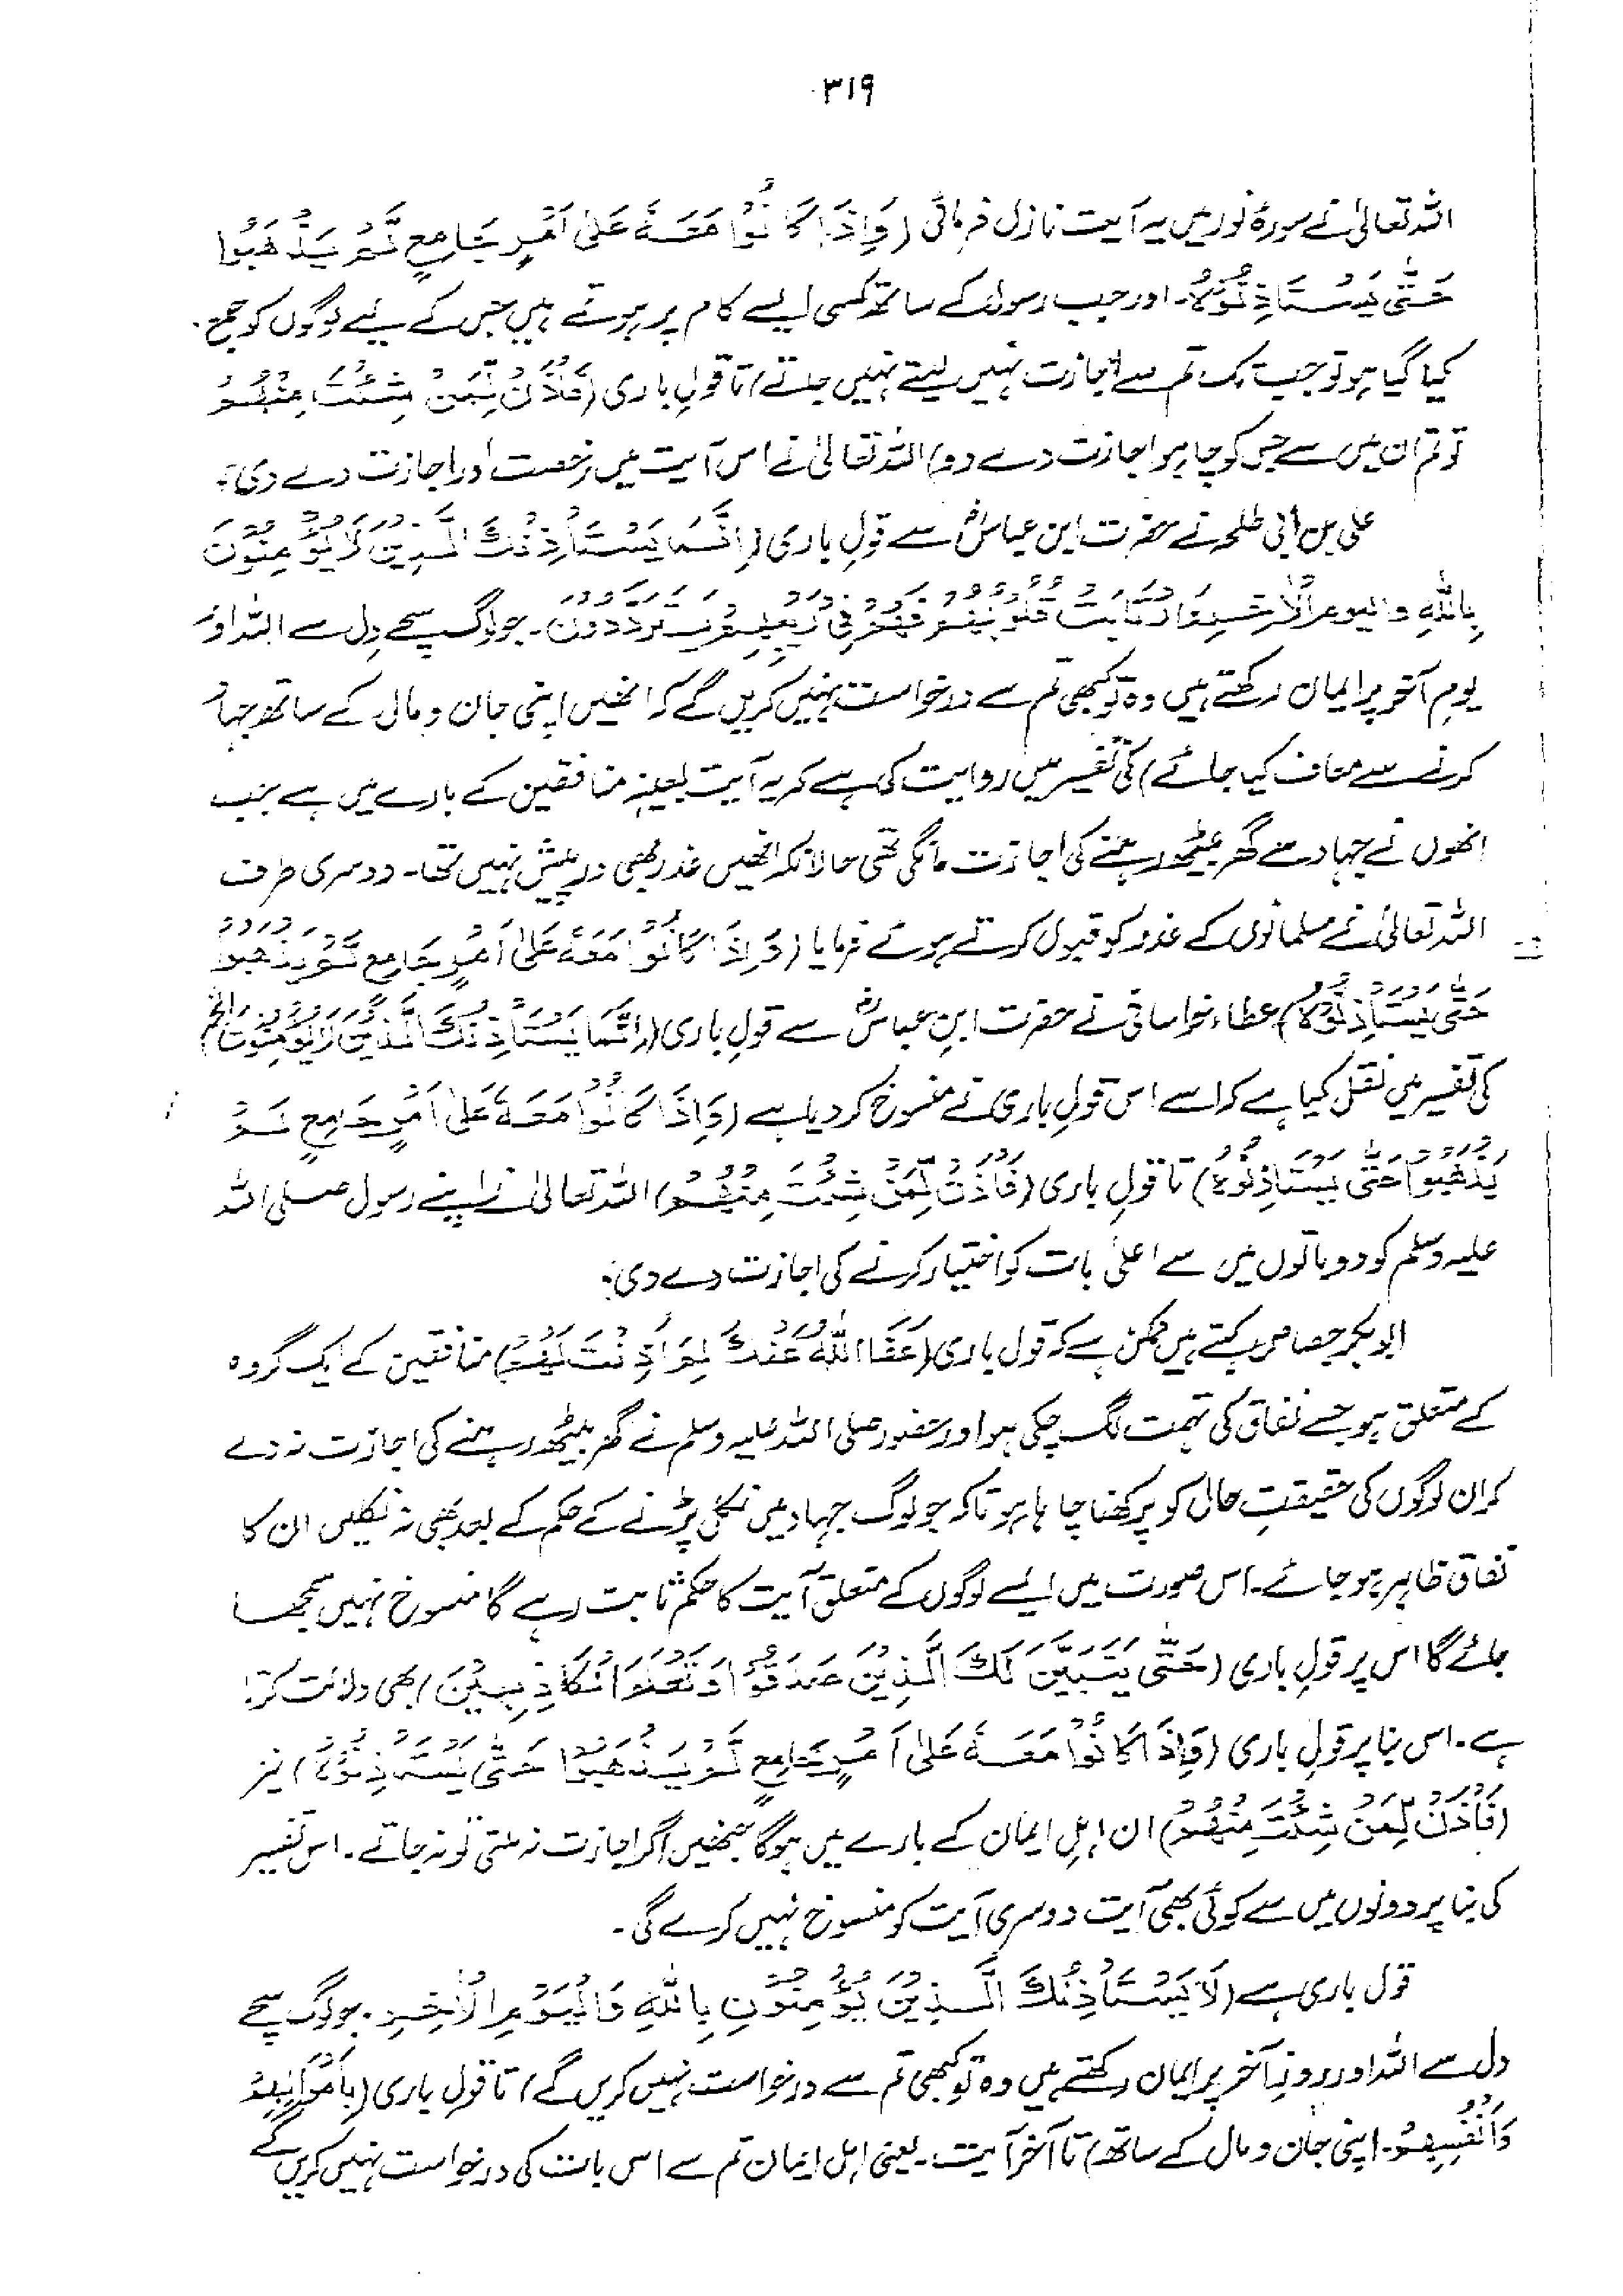 ۳۱۹
اللہ تعالیٰ نے سورۂ نور میں یہ آیت نازل فرمائی (وَإِذَا كَانُوْا مَعَهٗ عَلٰى اَمْرٍ جَامِعٍ لَّمْ يَذْهَبُوْا
حَتّٰى يَسْتَاْذِنُوْهُ۔ اور جب رسول کے ساتھ کسی ایسے کام پر ہوتے ہیں جس کے لیے لوگوں کو جمع
کیا گیا ہو تو جب تک تم سے اجازت نہیں لیتے نہیں جاتے) تا قولِ باری (فَأْذَنْ لِّمَنْ شِئْتَ مِنْهُمْ
تو تم ان میں سے جس کو چاہو اجازت دے دو) اللہ تعالیٰ نے اس آیت میں رخصت اور اجازت دے دی۔
علی بن ابی طلحہ نے حضرت ابن عباسؓ سے قولِ باری (اِنَّمَا يَسْتَأْذِنُكَ الَّذِيْنَ لَا يُؤْمِنُوْنَ
بِاللهِ وَالْيَوْمِ الْاٰخِرِ وَارْتَابَتْ قُلُوْبُهُمْ فَهُمْ فِيْ رَيْبِهِمْ يَتَرَدَّدُوْنَ۔ جو لوگ سچے دل سے اللہ اور
یومِ آخر پر ایمان رکھتے ہیں وہ تو کبھی تم سے درخواست نہیں کریں گے کہ انھیں اپنی جان و مال کے ساتھ جہاد
کرنے سے معاف کیا جائے) کی تفسیر میں روایت کی ہے کہ یہ آیت بعینہٖ منافقین کے بارے میں ہے جب
انھوں نے جہاد سے گھر بیٹھ رہنے کی اجازت مانگی تھی حالانکہ انھیں عذر بھی درپیش نہیں تھا۔ دوسری طرف
اللہ تعالیٰ نے مسلمانوں کے عذر کو قبول کرتے ہوئے فرمایا (وَاِذَا كَانُوْا مَعَهٗ عَلٰى اَمْرٍ جَامِعٍ لَّمْ يَذْهَبُوْا
حَتّٰى يَسْتَاْذِنُوْهُ) عطاء خراسانی نے حضرت ابنِ عباسؓ سے قولِ باری (اِنَّمَا يَسْتَاْذِنُكَ الَّذِيْنَ لَا يُؤْمِنُوْنَ الخ)
کی تفسیر میں نقل کیا ہے کہ اسے اس قولِ باری نے منسوخ کر دیا ہے (وَاِذَا كَانُوْا مَعَهٗ عَلٰى اَمْرٍ جَامِعٍ لَّمْ
يَذْهَبُوْا حَتّٰى يَسْتَاْذِنُوْهُ) تا قولِ باری (فَأْذَنْ لِّمَنْ شِئْتَ مِنْهُمْ) اللہ تعالیٰ نے اپنے رسول صلی اللہ
علیہ وسلم کو دو باتوں میں سے اعلیٰ بات کو اختیار کرنے کی اجازت دے دی۔
ابوبکر جصاص کہتے ہیں ممکن ہے کہ قول باری (عَفَا اللهُ عَنْكَ لِمَ اَذِنْتَ لَهُمْ) منافقین کے ایک گروہ
کے متعلق ہو جسے نفاق کی تہمت لگ چکی ہو اور حضور صلی اللہ علیہ وسلم نے گھر بیٹھ رہنے کی اجازت نہ دے
کر ان لوگوں کی حقیقتِ حال کو پرکھنا چاہا ہو تاکہ جو لوگ جہاد میں نکل پڑنے کے حکم کے بعد بھی نہ نکلیں ان کا
نفاق ظاہر ہو جائے۔ اس صورت میں ایسے لوگوں کے متعلق آیت کا حکم ثابت رہے گا منسوخ نہیں سمجھا
جائے گا اس پر قولِ باری (حَتّٰى يَتَبَيَّنَ لَكَ الَّذِيْنَ صَدَقُوْا وَتَعْلَمَ الْكَاذِبِيْنَ) بھی دلالت کرتا
ہے۔ اس بنا پر قولِ باری (وَاِذَا كَانُوْا مَعَهٗ عَلٰى اَمْرٍ جَامِعٍ لَّمْ يَذْهَبُوْا حَتّٰى يَسْتَاْذِنُوْهُ) نیز
(فَأْذَنْ لِّمَنْ شِئْتَ مِنْهُمْ) ان اہلِ ایمان کے بارے میں ہوگا جنھیں اگر اجازت نہ ملتی تو نہ جاتے۔ اس تفسیر
کی بنا پر دونوں میں سے کوئی بھی آیت دوسری آیت کو منسوخ نہیں کرے گی۔
قول باری ہے (لَا يَسْتَاْذِنُكَ الَّذِيْنَ يُؤْمِنُوْنَ بِاللهِ وَالْيَوْمِ الْاٰخِرِ۔ جو لوگ سچے
دل سے اللہ اور روزِ آخر پر ایمان رکھتے ہیں وہ تو کبھی تم سے درخواست نہیں کریں گے) تا قولِ باری (بِاَمْوَالِهِمْ
وَاَنْفُسِهِمْ۔ اپنی جان و مال کے ساتھ) تا آخر آیت۔ یعنی اہل ایمان تم سے اس بات کی درخواست نہیں کریں گے